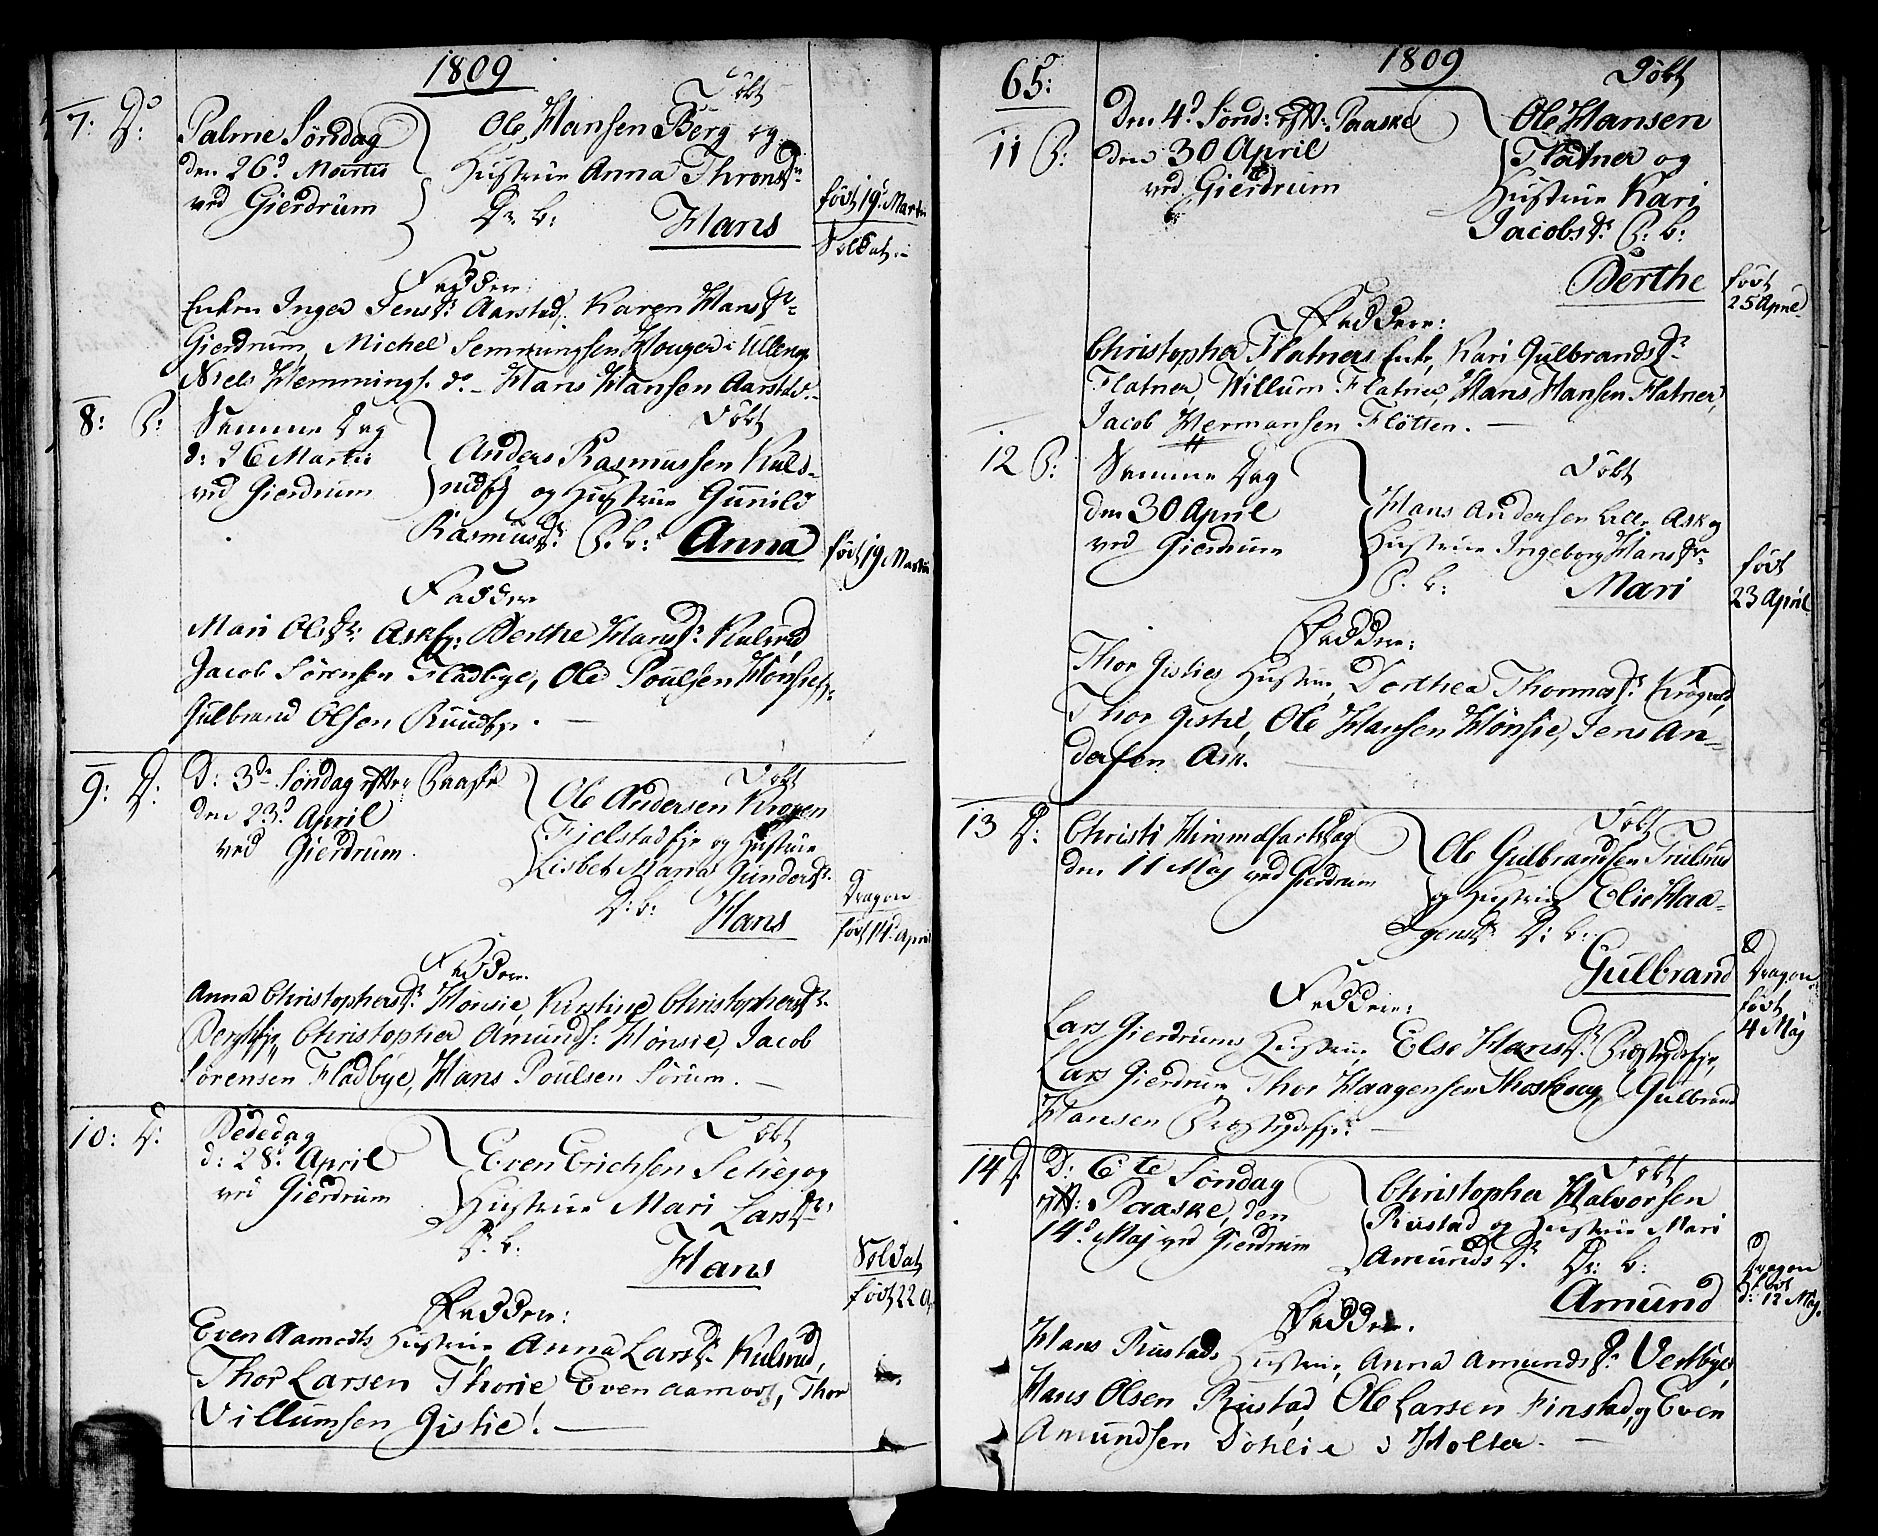 1809
7: D:
Døbt
Palme Søndag
den 26d Martii
ved Gierdrum
Ole Hansen Berg og
Hustrue Anna Thronds Dr
Dr. b:
Hans
født 19 Martii
Soldat
Faddere:
Enken Inger Jens Dr Aarstad, Karen Hans Dr
Gierdrum, Michel Semmingsen Houger i Ullens:
Niels Hemmings. do – Hans Hansen Aarstad.
8: P:
Samme Dag
d: 26 Martii
ved Gierdrum
Døbt
Anders Rasmussen Kuls-
rudfj og Hustrue Gunild
Rasmus Dr P. b: Anna
født 19 Martii
Faddere
Mari Ols Dr Ask Ej: Berthe Hans Dr Kulsrud,
Jacob Sørensen Fladbye, Ole Poulsen Hønsiefj.
Gulbrand Olsen Ruudfj. –
9: D:
D: 3de Søndag efter Paaske
den 23d April
ved Gierdrum
Døbt
Ole Andersen Krogen
Fjelstadfje og Hustrue
Lisbet Maria Gunders Dr
D: b: Hans
Dragon
født 14d April
Faddere.
Anna Christophers Dr Hønsie, Kirstine Christophers Dr
Bergsfje, Christopher Amunds: Hønsie, Jacob
Sørensen Fladbye, Hans Poulsen Sørum. –
10: D:
Bededag
d: 28: April
ved Gierdrum
Døbt
Even Erichsen Schiej og
Hustrue Mari Lars Dr
D. b:
Hans
Soldat
født 22 A
Faddere:
Even Aamodts Hustrue, Anna Lars Dr Kulsrud,
Thor Larsen Thorie Even Aamodt, Thor
Villumsen Gistie! –
65:
1809
11 P:
Døbt
Den 4d Sønd: eft: Paaske
den 30 April
ved Gierdrum
Ole Hansen
Flatner og
Hustrue Kari
Jacobs Dr P: b:
Berthe
født
25 April
Faddere:
Christopher Flatners Enke, Kari Gulbrands Dr
Flatner, Willum Flatner, Hans Hansen Flatner,
Jacob Hermansen Fløtten. –
12 P:
Samme Dag
den 30 April
ved Gierdrum
Døbt
Hans Andersen Lille Ask og
Hustrue Ingeborg Hans Dr
P. b:
Mari
født
23 April
Faddere:
Thor Gisties Hustrue, Dorthea Thomas Dr Krogvold,
Thor Gistie, Ole Hansen Hønsie, Jens An-
dersen Ask.
13 D:
Christi Himmelfarts Dag
den 11 Maj ved Gierdrum
Døbt
Ole Gulbrandsen Trulsrud
og Hustrue Elie Haa-
gens Dr D: b:
Gulbrand
Dragon
født
4 Maj
Faddere:
Lars Gierdrums Hustrue Else Hans Dr Præstgdsfje,
Lars Gierdrum, Thor Haagensen Thoshoug, Gulbrand
Hansen Præstgdsfje. –
14 D:
D: 6te Søndag
eft: Paaske, den
14d Maj ved Gierdrum
Døbt
Christopher Halvorsen
Rustad og Hustrue Mari
Amunds Dr. Dr: b:
Amund
Dragon
født
d: 12 Maj.
Faddere.
Hans Rustads Hustrue, Anna Amunds Dr Vestbye,
Hans Olsen Rustad, Ole Larsen Finstad, og Even
Amundsen Døhlie i Holter. –